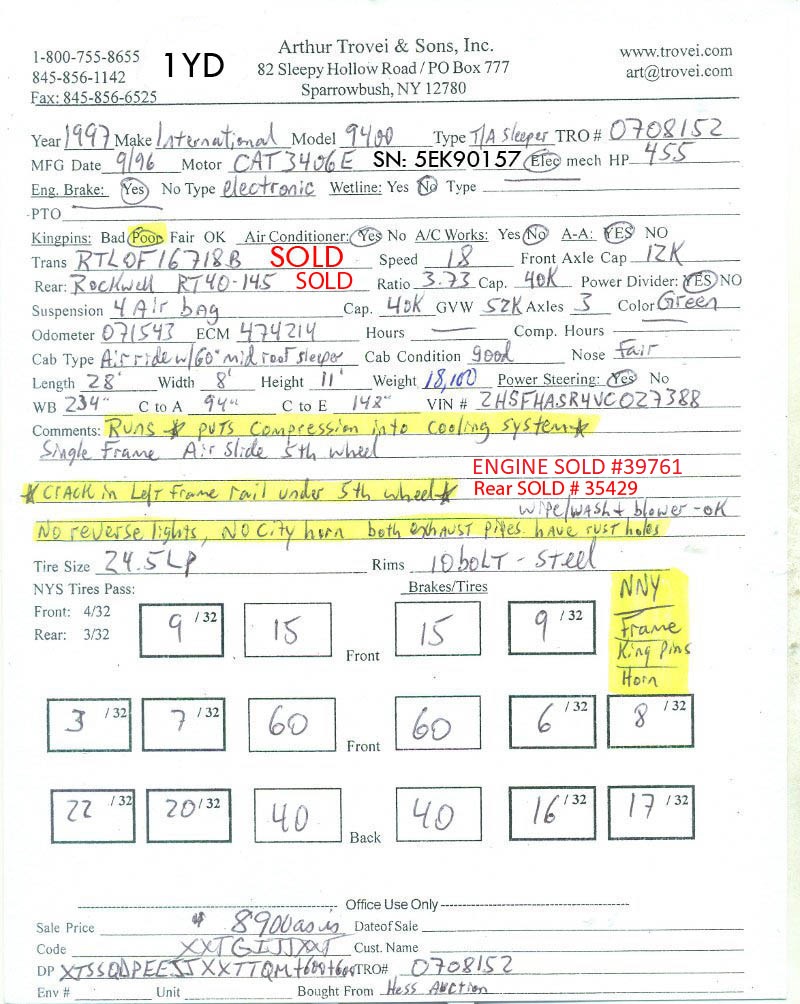 Arthur Trovei & Sons, Inc.
1-800-755-8655 1YD 82 Sleepy Hollow Road / PO Box 777 www.trovei.com
845-856-1142 Sparrowbush, NY 12780 art@trovei.com
Fax: 845-856-6525
Year 1997 Make International Model 9400 Type T/A Sleeper TRO # 0708152
MFG Date 9/96 Motor CAT 3406E SN: 5EK90157 Elec mech HP 455
Eng. Brake: Yes No Type electronic Wetline: Yes No Type
PTO
Kingpins: Bad Poor Fair OK Air Conditioner: Yes No A/C Works: Yes No A-A: YES NO
Trans RTLOF16718B SOLD Speed 18 Front Axle Cap 12K
Rear: Rockwell RT40-145 SOLD Ratio 3.73 Cap. 40K Power Divider: YES NO
Suspension 4 Air bag Cap. 40K GVW 52K Axles 3 Color Green
Odometer 071543 ECM 474214 Hours — Comp. Hours —
Cab Type Air ride w/60" mid roof sleeper Cab Condition good Nose Fair
Length 28' Width 8' Height 11' Weight 18,100 Power Steering: Yes No
WB 234" C to A 94" C to E 148" VIN # 2HSFHASR4VC027388
Comments: Runs * puts compression into cooling system *
Single Frame Air Slide 5th wheel
ENGINE SOLD #39761
* Crack in Left Frame rail under 5th wheel * Rear SOLD # 35429
wipe/wash + blower - ok
No reverse lights, No City horn both exhaust pipes have rust holes
Tire Size 24.5 LP Rims 10 bolt - Steel
NYS Tires Pass: Brakes/Tires NNY
Front: 4/32
Rear: 3/32
9 /32 15 Front 15 9 /32
Frame
King Pins
Horn
3 /32 7 /32 60 Front 60 6 /32 8 /32
22 /32 20 /32 40 Back 40 16 /32 17 /32
Office Use Only
Sale Price $ 8900 as is Date of Sale
Code XXTGIJJXXT Cust. Name
DP XTSSQDPEEJJXXTTQM+600+600 TRO# 0708152
Env # Unit Bought From Hess Auction